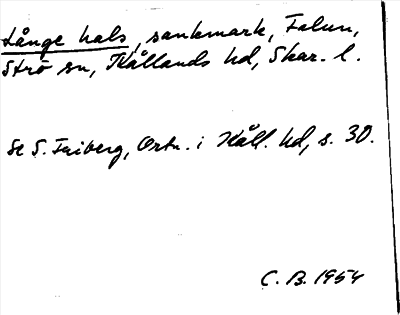 Långe hals, sankmark, Falun,
Strö sn, Kållands hd, Skar. l.
Se S. Friberg, Ortn. i Kåll. hd, s. 30.
C. B. 1954